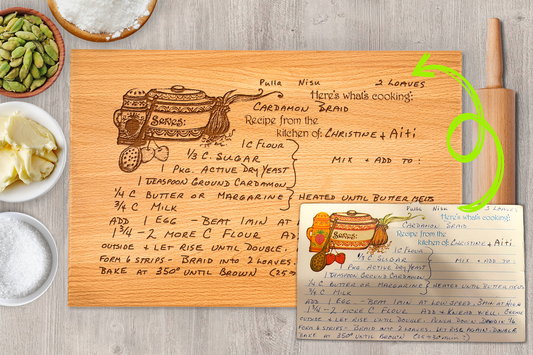 Pulla Nisu 2 LOAVES
Here's what's cooking:
CARDAMON BRAID
Recipe from the
kitchen of: CHRISTINE & Aiti
Serves:
1 C FLOUR
1/3 C. SUGAR
MIX & ADD TO:
1 PKG. ACTIVE DRY YEAST
1 TEASPOON GROUND CARDAMON
1/4 C BUTTER OR MARGARINE HEATED UNTIL BUTTER MELTS
3/4 C MILK
ADD 1 EGG - BEAT 1 MIN AT
1 3/4 - 2 MORE C FLOUR
OUTSIDE & LET RISE UNTIL DOUBLE.
FORM 6 STRIPS - BRAID INTO 2 LOAVES.
BAKE AT 350° UNTIL BROWN (25
Pulla Nisu 2 LOAVES
Here's what's cooking:
CARDAMON BRAID
Recipe from the
kitchen of: CHRISTINE & Aiti
Serves:
1 C FLOUR
1/3 C. SUGAR
MIX & ADD TO:
1 PKG. ACTIVE DRY YEAST
1 TEASPOON GROUND CARDAMON
1/4 C BUTTER OR MARGARINE HEATED UNTIL BUTTER MELTS
3/4 C MILK
ADD 1 EGG - BEAT 1 MIN AT LOW SPEED, 3 MIN AT HIGH
1 3/4 - 2 MORE C FLOUR ADD & KNEAD WELL. GREASE
OUTSIDE & LET RISE UNTIL DOUBLE. PUNCH DOWN
FORM 6 STRIPS - BRAID INTO 2 LOAVES. LET RISE AGAIN. DOUBLE
BAKE AT 350° UNTIL BROWN